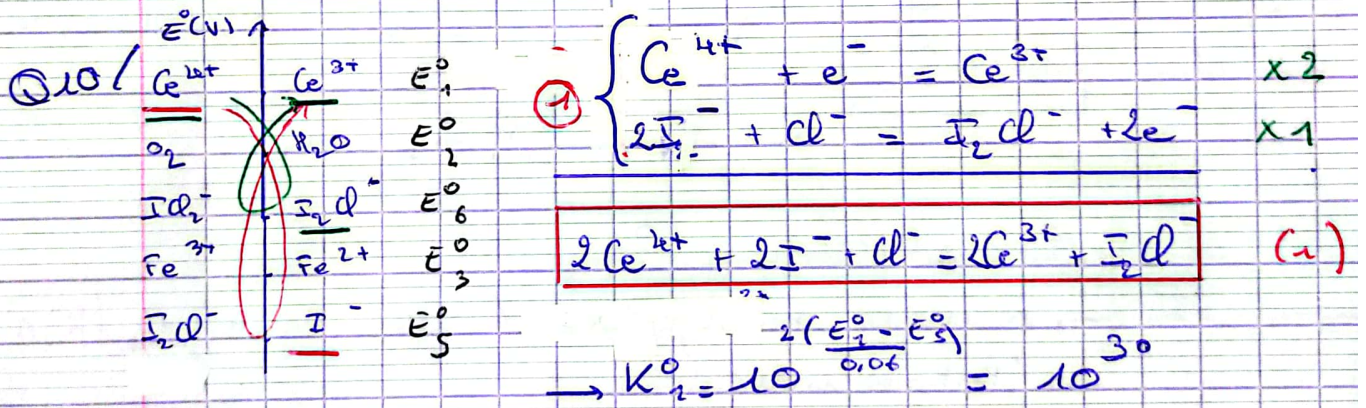 E°(V)
Q10/ Ce⁴⁺ Ce³⁺ E°₁
O₂ H₂O E°₂
ICl₂⁻ I₂Cl⁻ E°₆
Fe³⁺ Fe²⁺ E°₃
I₂Cl⁻ I⁻ E°₅
① { Ce⁴⁺ + e⁻ = Ce³⁺ x 2
2I⁻ + Cl⁻ = I₂Cl⁻ + 2e⁻ x 1
2Ce⁴⁺ + 2I⁻ + Cl⁻ = 2Ce³⁺ + I₂Cl⁻ (1)
→ K°₂ = 10^(2(E°₁ - E°₅)/0,06) = 10³⁰